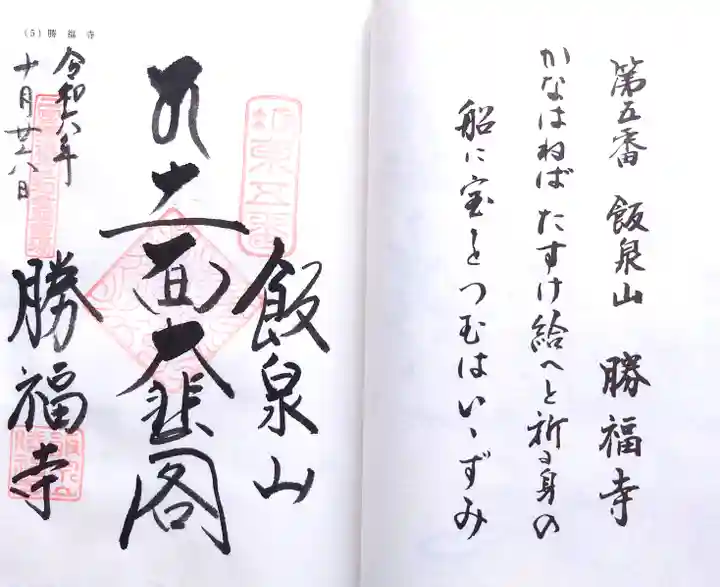 第五番 飯泉山 勝福寺
かなはねば たすけ給へと 祈る身の
船に宝を つむはいゝずみ
(5) 勝福寺
坂東五番
飯泉山
十一面大悲閣
令和六年
十月廿八日
勝福寺